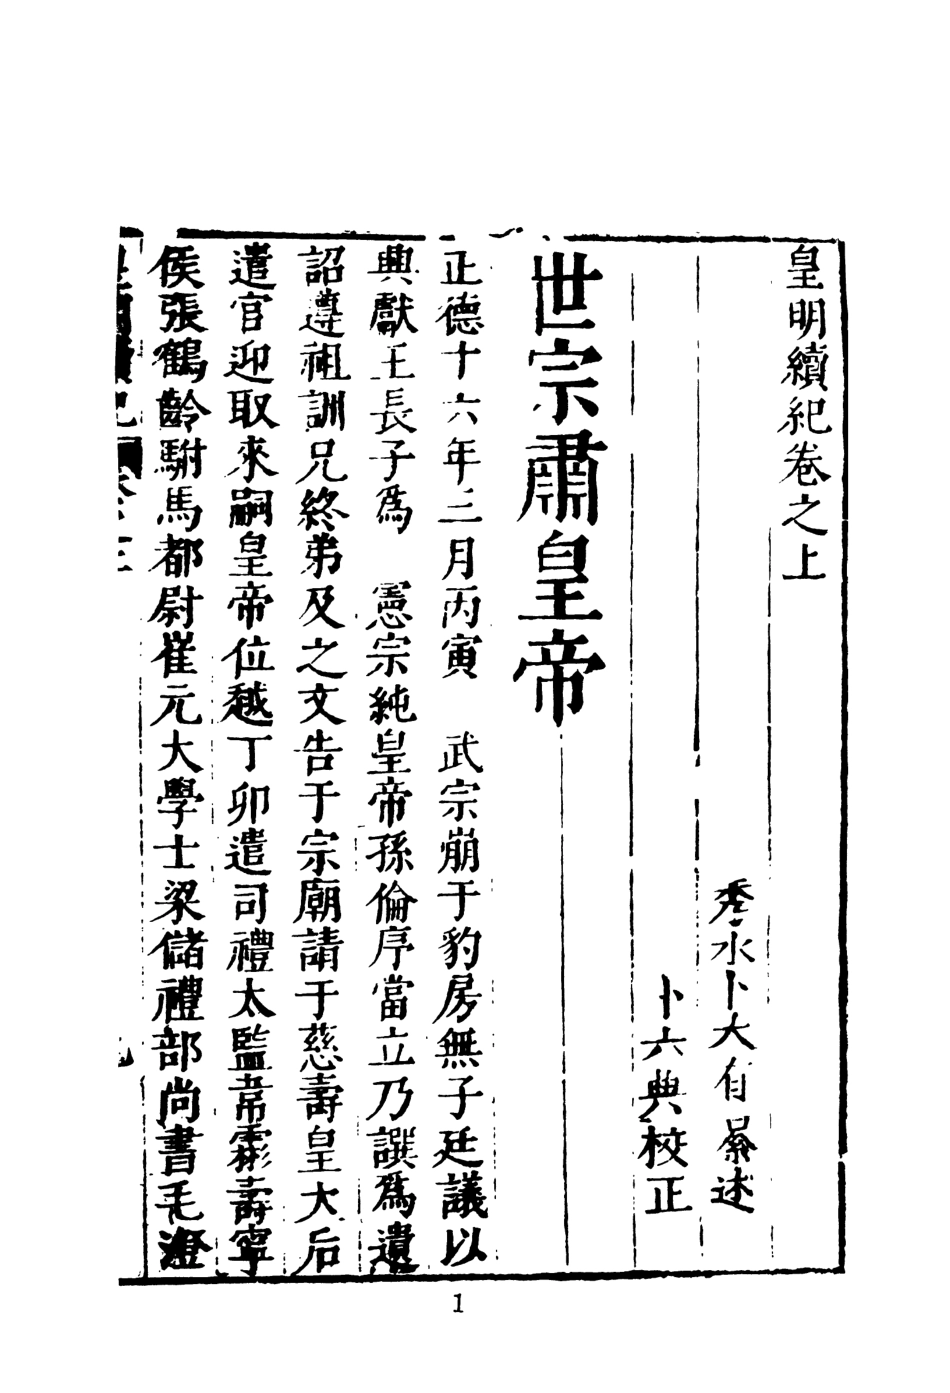 皇明續紀卷之上
秀水卜大有纂述
卜六典校正
世宗肅皇帝
正德十六年三月丙寅 武宗崩于豹房無子廷議以
興獻王長子爲 憲宗純皇帝孫倫序當立乃譔爲遺
詔遵祖訓兄終弟及之文告于宗廟請于慈壽皇大后
遣官迎取來嗣皇帝位越丁卯遣司禮太監韋霦壽寧
侯張鶴齡駙馬都尉崔元大學士梁儲禮部尚書毛澄
1